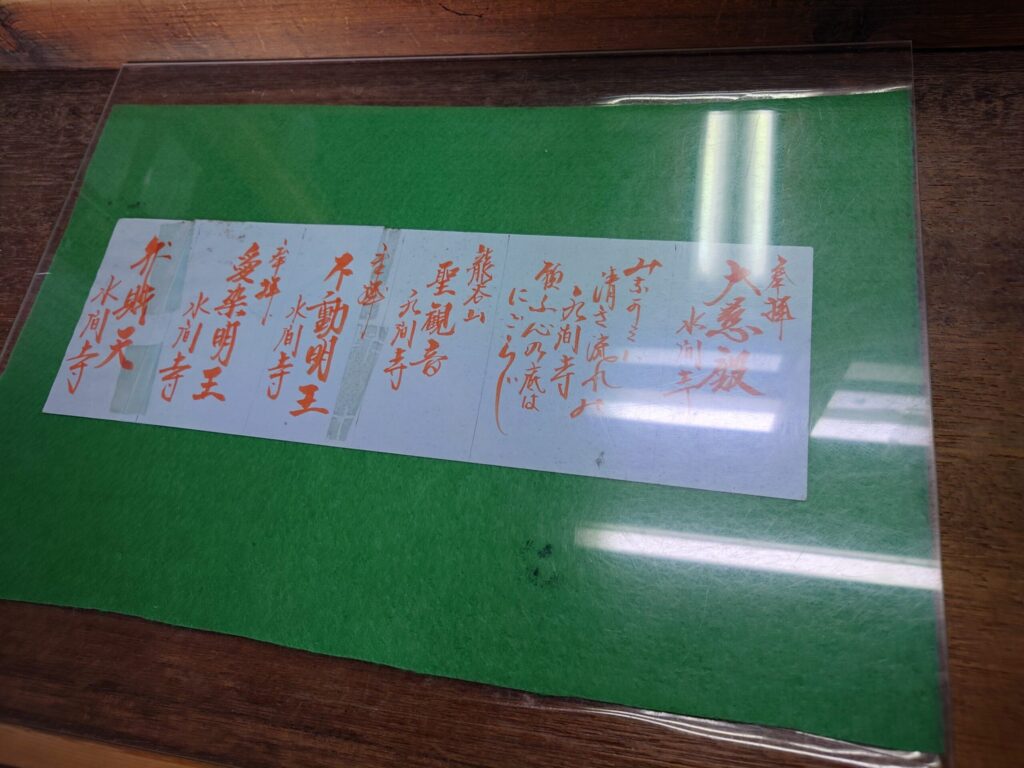 奉拝
大悲殿
水間寺
みなかみは
清き流れの
水間寺
願ふ心の底は
にごらじ
龍谷山
聖観音
水間寺
奉拝
不動明王
水間寺
奉拝
愛染明王
水間寺
弁財天
水間寺